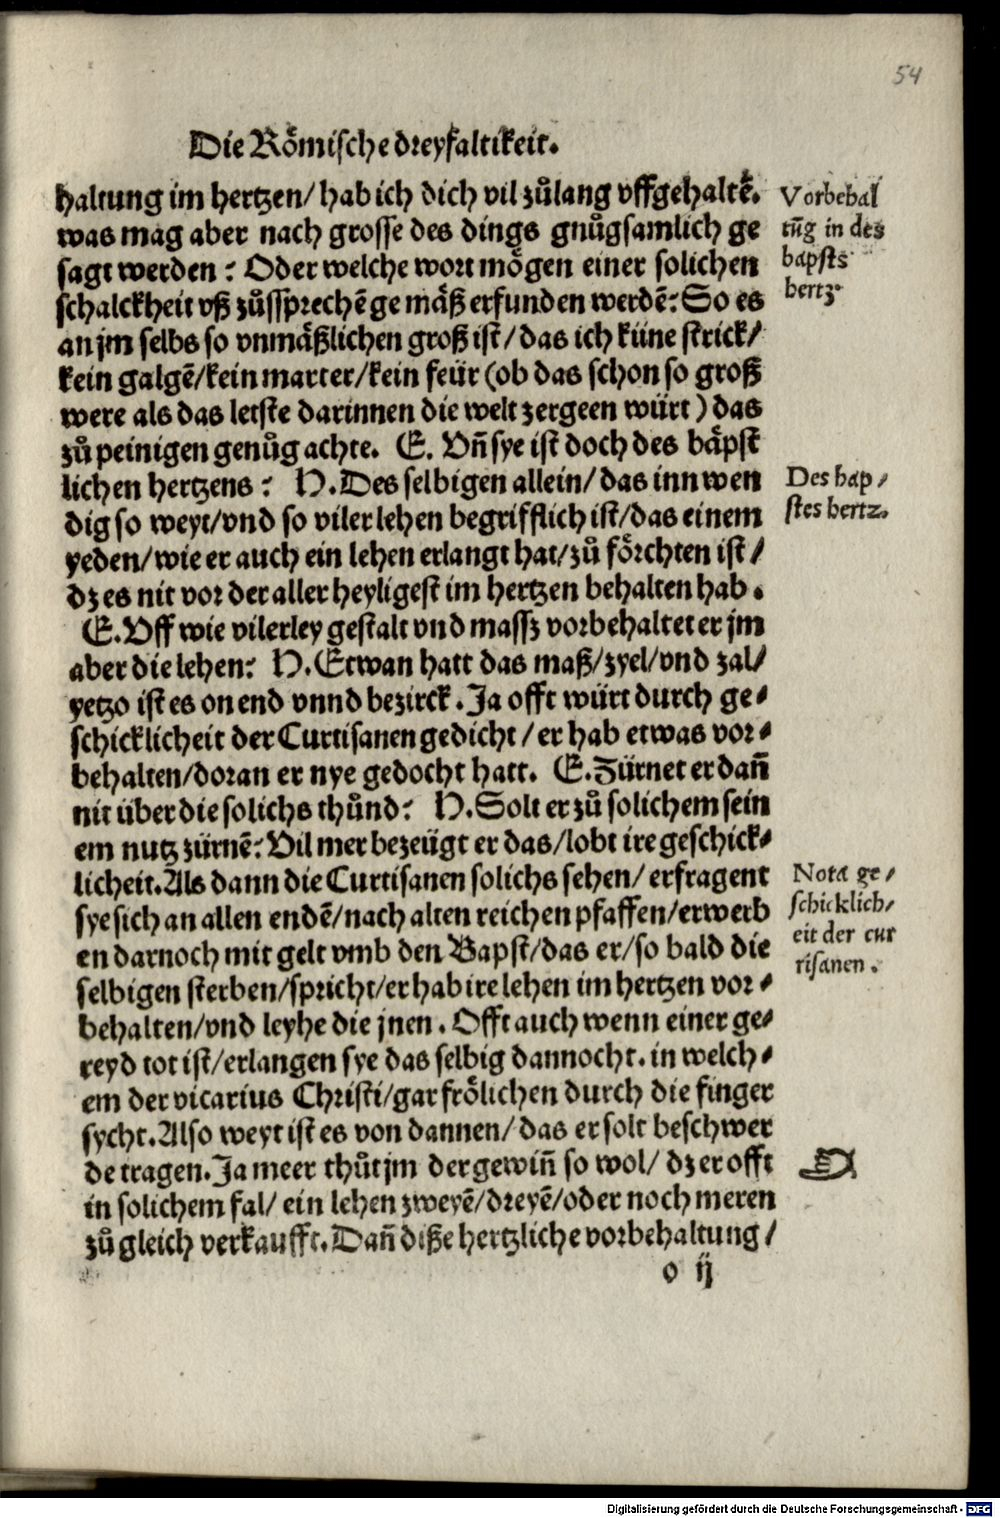 54
Die Roͤmische dreyfaltikeit.
haltung im hertzen/ hab ich dich vil zuͦlang vffgehaltẽ.
was mag aber nach grosse des dings gnuͦgsamlich ge
sagt werden: Oder welche wort moͤgen einer solichen
schalckheit vß zuͦssprechẽ ge maͤß erfunden werdẽ: So es
an jm selbs so vnmaͤßlichen groß ist/ das ich küne strick/
kein galgẽ/kein marter/kein feür (ob das schon so groß
were als das letste darinnen die welt zergeen würt) das
zuͦ peinigen genuͦg achte. E. Vñ sye ist doch des baͤpst
lichen hertzens: H. Des selbigen allein/ das inn wen
dig so weyt/vnd so viler lehen begrifflich ist/das einem
yeden/wie er auch ein lehen erlangt hat/zuͦ foͤrchten ist/
dz es nit vor der aller heyligest im hertzen behalten hab.
E. Vff wie vilerley gestalt vnd massz vorbehaltet er jm
aber die lehen: H. Etwan hatt das maß/zyel/vnd zal/
yetzo ist es on end vnnd bezirck. Ja offt würt durch ge⸗
schicklicheit der Curtisanen gedicht/er hab etwas vor⸗
behalten/doran er nye gedocht hatt. E. Zürnet er dañ
nit über die solichs thuͦnd: H. Solt er zuͦ solichem sein
em nutz zürnẽ: Vil mer bezeügt er das/lobt ire geschick⸗
licheit. Als dann die Curtisanen solichs sehen/ erfragent
sye sich an allen endẽ/nach alten reichen pfaffen/erwerb
en darnoch mit gelt vmb den Bapst/das er/so bald die
selbigen sterben/spricht/er hab ire lehen im hertzen vor⸗
behalten/vnd leyhe die jnen. Offt auch wenn einer ge⸗
reyd tot ist/erlangen sye das selbig dannocht. in welch⸗
em der vicarius Christi/gar froͤlichen durch die finger
sycht. Also weyt ist es von dannen/ das er solt beschwer
de tragen. Ja meer thuͦt jm der gewiñ so wol/ dz er offt
in solichem fal/ ein lehen zweyẽ/dreyẽ/oder noch meren
zuͦ gleich verkaufft. Dañ diße hertzliche vorbehaltung/
o ij
Vorbehal
tũg in des
bapsts
hertz.
Des bap⸗
stes hertz.
Nota ge⸗
schicklich⸗
eit der cur
tisanen.
Digitalisierung gefördert durch die Deutsche Forschungsgemeinschaft - DFG